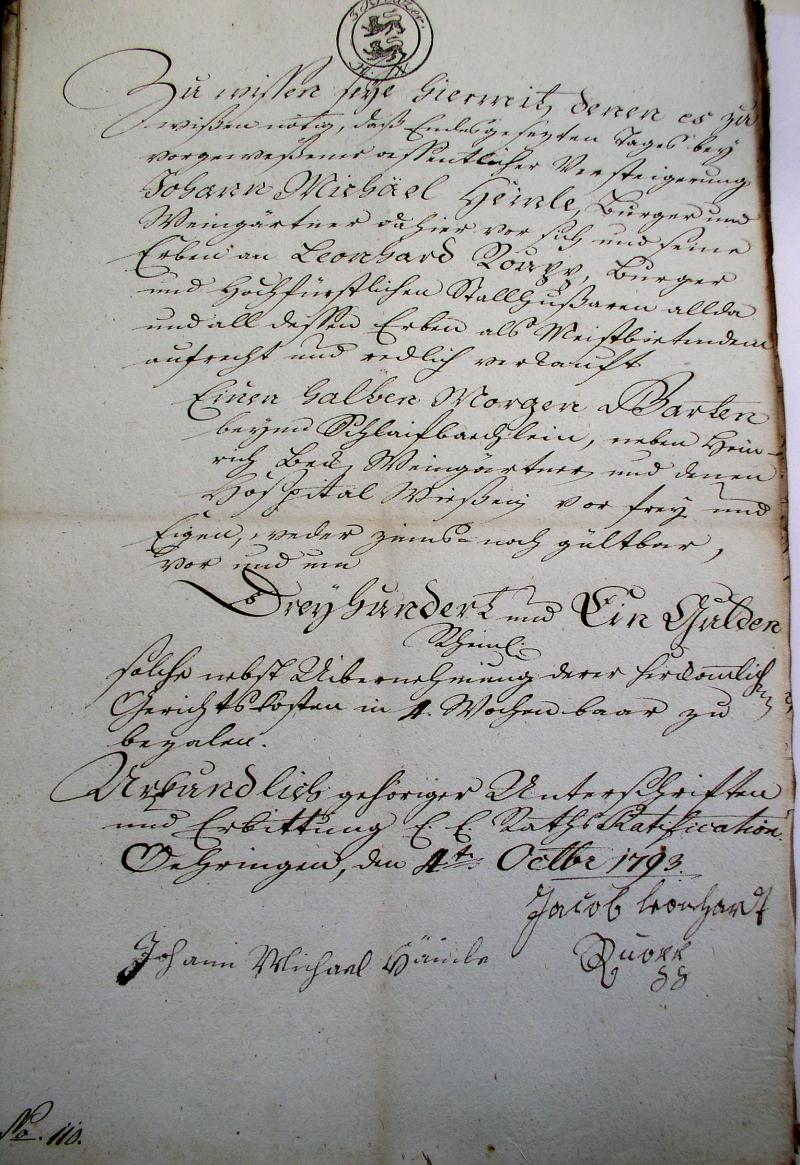 3. Kreuzer.
Zu wissen seye hiermit denen es zu
wißen nötig, daß Endesgesezten Tages bey
vorgeweßener oeffentlicher Versteigerung
Johann Michael Heinle, Burger und
Weingärtner dahier vor sich und seine
Erben an Leonhard Rupp, Burger
und Hochfürstlichen Stallhußaren allda
und all dessen Erben als Meistbietendem
aufrecht und redlich verkauft
Einen halben Morgen Garten
beym Schlaifbaechlein, neben Hein-
rich Beck, Weingärtner und denen
Hospital Wießen vor frey und
Eigen, weder zinns- noch gültbar,
vor und um
Dreyhundert und Ein Gulden
Rheinl.
solche nebst Uibernehmung derer herkömlichen
Gerichtskosten in 4. Wochen baar zu
bezalen.
Urkundlich gehöriger Unterschriften
und Erbittung E. E. Raths Ratification.
Oehringen, den 4t. Octbr 1793.
Jacob leonhardt
Johann Michael Häinle
No. 110.